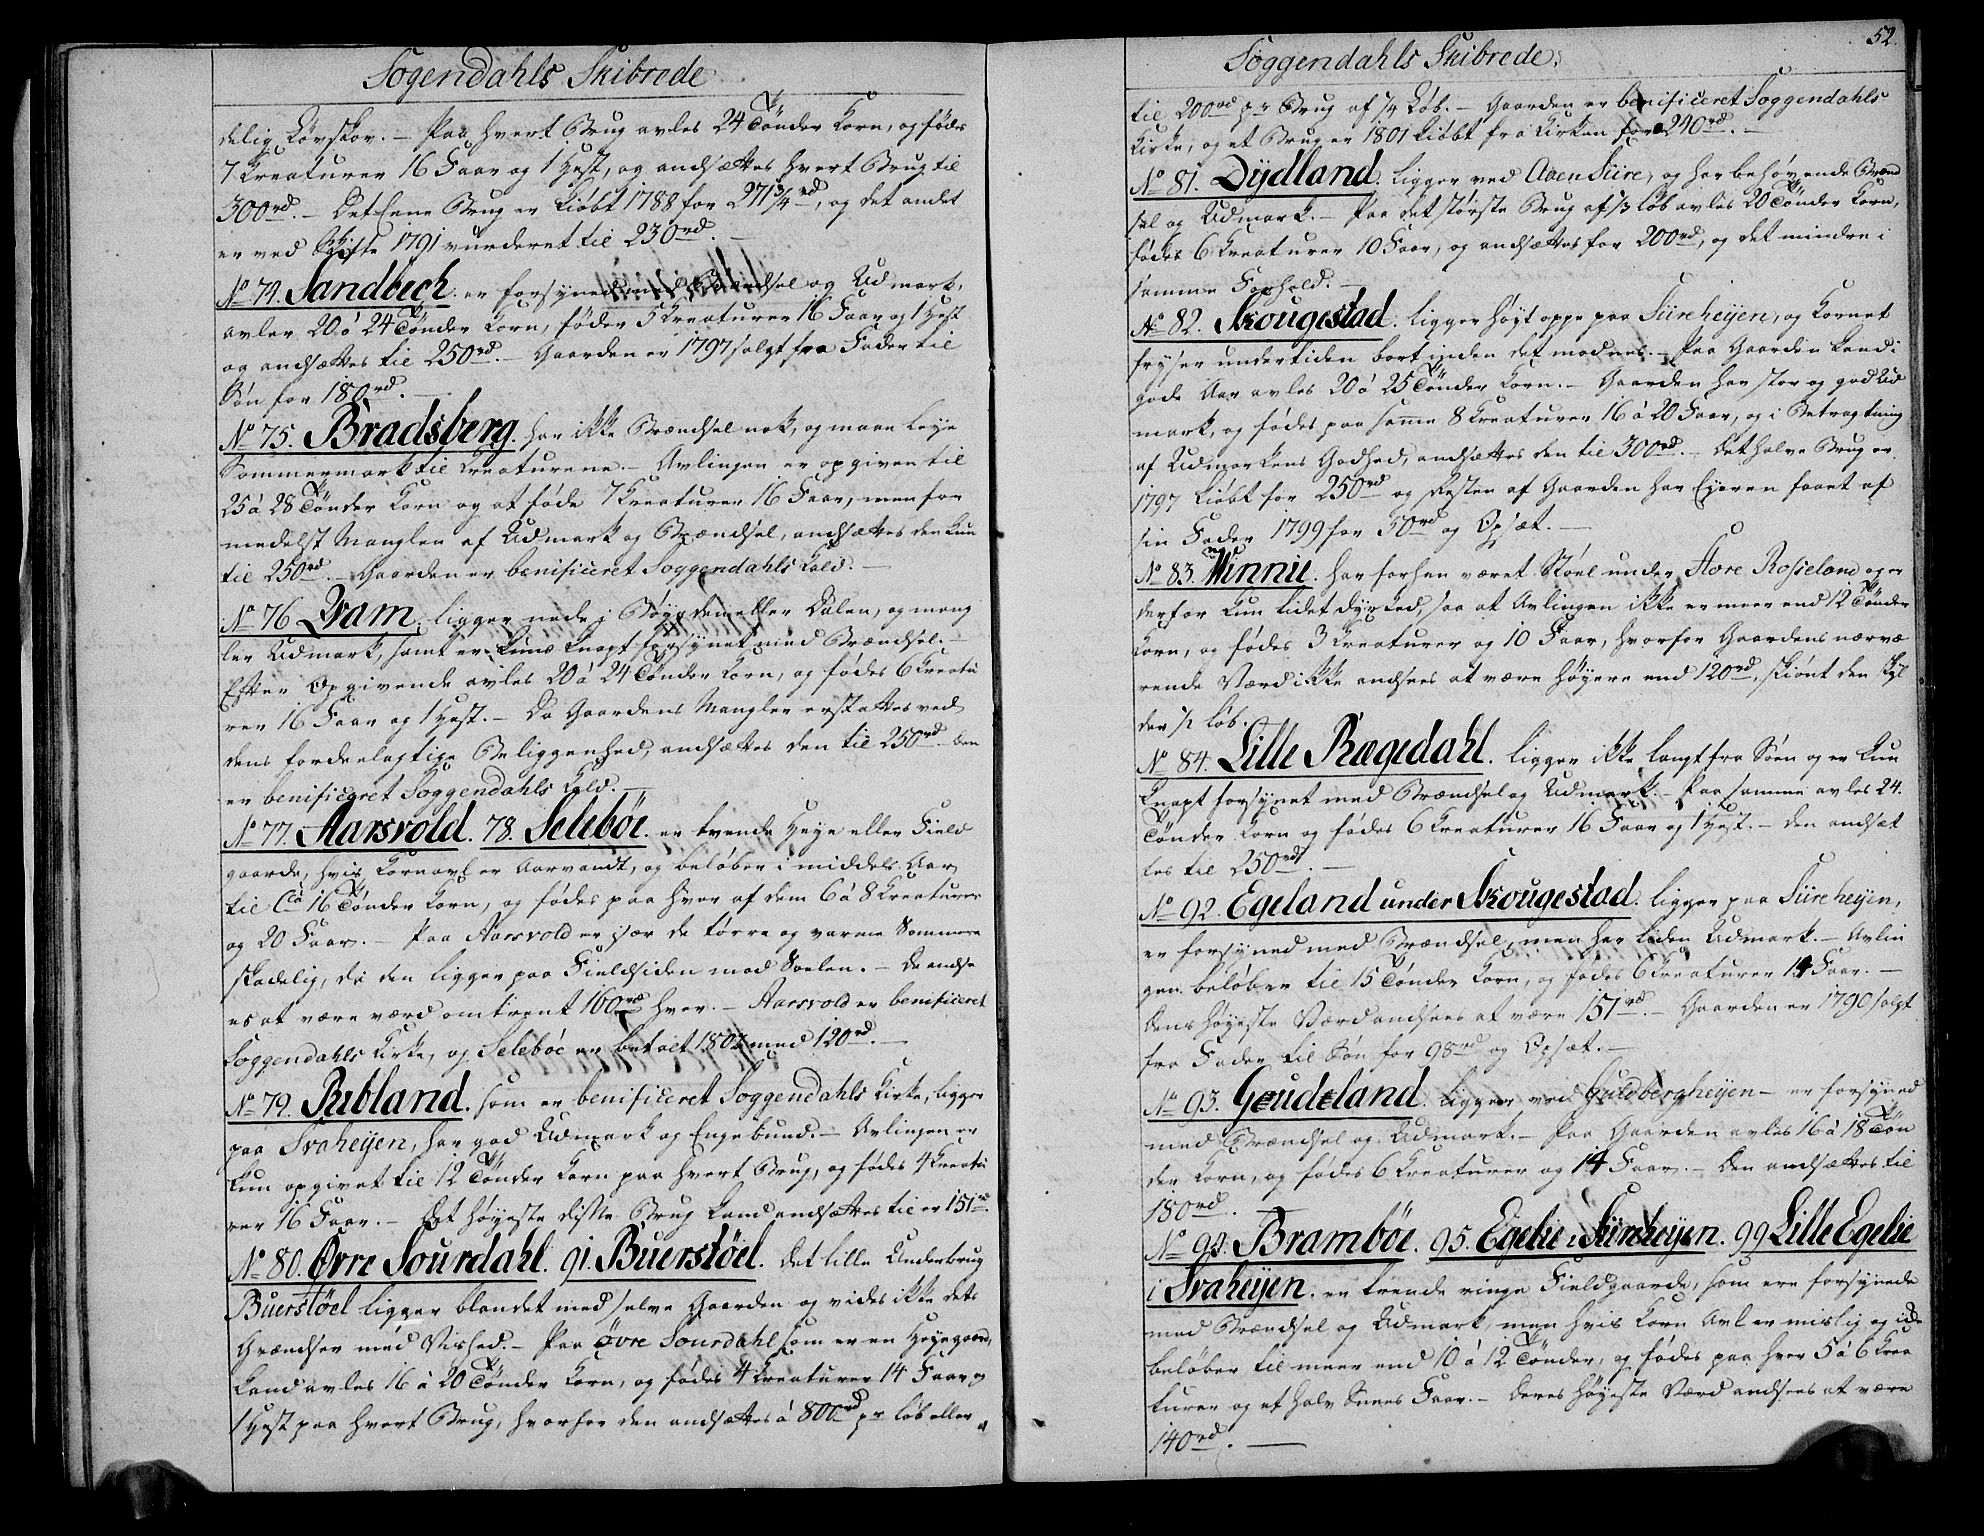 Sogendahls Skibrede
delig Løvskov. – Paa hvert Brug avles 24 Tønder Korn, og fødes
7 Kreaturer 16 Faar og 1 Hest, og ansættes hvert Brug til
300rd. – Det Eene Brug er kiøbt 1788 for 271 3/4rd, og det andet
er ved Skifte 1791 vurderet til 230rd. –
No 74. Sandbech. er forsyned med Brændsel og Udmark,
avler 20 á 24 Tønder Korn, føder 5 Kreaturer 16 Faar og 1 Hest
og andsættes til 250rd. – Gaarden er 1797 solgt fra Fader til
Søn for 180rd. –
No 75. Bradsberg. har ikke Brændsel nok, og maae leye
Sommermark til Creaturene. – Avlingen er opgiven til
25 á 28 Tønder Korn og at føde 7 Kreaturer 16 Faar, men for
medelst Manglen af Udmark og Brændsel, andsættes den kun
til 250rd. – Gaarden er benificeret Soggendahls Kald. –
No 76 Qvam, ligger nede i Bøygden eller Dalen, og mang
ler Udmark, samt er kune knapt forsynet med Brændsel. –
Efter Opgivende avles 20 á 24 Tønder Korn, og fødes 6 Kreatu
rer 16 Faar og 1 Hest. – Da Gaardens Mangler erstattes ved
dens fordeelagtige Beliggenhed, andsættes den til 250rd. Den
er benificeret Soggendahls Kald. –
No 77. Aarsvold. 78. Selebøe. er tvende Heye eller Field
gaarde, hvis Kornavl er Aarvandt, og beløber i middels Aar
til Ca 16 Tønder Korn, og fødes paa hver af dem 6 á 8 Kreaturer
og 20 Faar. – Paa Aarsvold er især de tørre og varme Sommere
skadelig, da den ligger paa Fieldsiden mod Soelen. – De andse
es at være værd omtrent 160rd hver. – Aarsvold er benificeret
Soggendahls Kirke, og Selebøe er betalt 1801 med 120rd. –
No 79. Rubland. som er benificeret Soggendahls Kirke, ligger
paa Svaheijen, har god Udmark og Engebund. – Avlingen er
kun opgivet til 12 Tønder Korn paa hvert Brug, og fødes 4 Kreatu
rer 16 Faar. – Det høyeste disse Brug kand andsættes til er 151rd.
No 80. Øvre Sourdahl. 91. Buerstøel. Det lille Underbrug
Buerstøel ligger blandet med selve Gaarden og vides ikke dets
Grændser med Vished. – Paa Øvre Sourdahl som er en Heyegaard,
kand avles 16 á 20 Tønder Korn, og fødes 4 Kreaturer 14 Faar og
1 Hest paa hvert Brug, hvorfor den andsættes á 800rd pr Løb eller
Soggendahls Skibrede.
52.
til 200rd pr Brug af 1/4 Løb. – Gaarden er benificeret Soggendahls
Kirke, og et Brug er 1801 kiøbt fra Kirken for 240rd. –
No 81. Dydland. ligger ved Aaen Siire, og har behøvende Brænd
sel og Udmark. – Paa det største Brug af 1/3 Løb avles 20 Tønder Korn,
fødes 6 Kreaturer 10 Faar, og andsættes for 200rd, og det mindre i
samme Forhold. –
No 82. Skougestad. ligger høyt oppe paa Siireheyen, og Kornet
fryser undertiden bort inden det modnes. – Paa Gaarden kand i
gode Aar avles 20 á 25 Tønder Korn. – Gaarden har stor og god Ud
mark, og fødes paa samme 8 Kreaturer 16 á 20 Faar, og i Betragtning
af Udmarkens Godhed, andsættes den til 300rd. – Det halve Brug er
1797 kiøbt for 250rd og Resten af Gaarden har Eyeren faaet af
sin Fader 1799 for 50rd og Opsæt. –
No 83. Winnie. har forhen været Støel under Store Rosseland og er
derfor kun lidet dyrked, saa at Avlingen ikke er meer end 12 Tønder
Korn, og fødes 3 Kreaturer og 10 Faar, hvorfor Gaardens nærvæ
rende Værd ikke andsees at være høyere end 120rd, skiønt den skyl
der 1/2 Løb.
No 84. Lille Rægedahl. ligger ikke langt fra Søen og er kun
knapt forsynet med Brændsel og Udmark. – Paa samme avles 24.
Tønder Korn og fødes 6 Kreaturer 16 Faar og 1 Hest. – Den andsæt
tes til 250rd. –
No 92. Egeland under Skougestad. ligger paa Siireheyen,
er forsyned med Brændsel, men har liden Udmark. – Avlin
gen beløber til 15 Tønder Korn, og fødes 6 Kreaturer 14 Faar. –
Dens høyeste Værd andsees at være 151rd. – Gaarden er 1790 solgt
fra Fader til Søn for 98rd og Opsæt. –
No 93. Goudeland. ligger ved Guldbergheyen – er forsyned
med Brændsel og Udmark. – Paa Gaarden avles 16 á 18 Tøn
der Korn, og fødes 6 Kreaturer og 14 Faar. – Den andsættes til
180rd. –
No 94. Brambøe. 95. Egelie i Siireheyen. 99 Lille Egelie
i Svaheijen. er trende ringe Fieldgaarde, som ere forsynede
med Brændsel og Udmark, men hvis Korn Avl er mislig og ikke
beløber til meer end 10 á 12 Tønder, og fødes paa hver 5 á 6 Krea
turer og et halv Snees Faar. – Deres høyeste Værd andsees at være
140rd. –